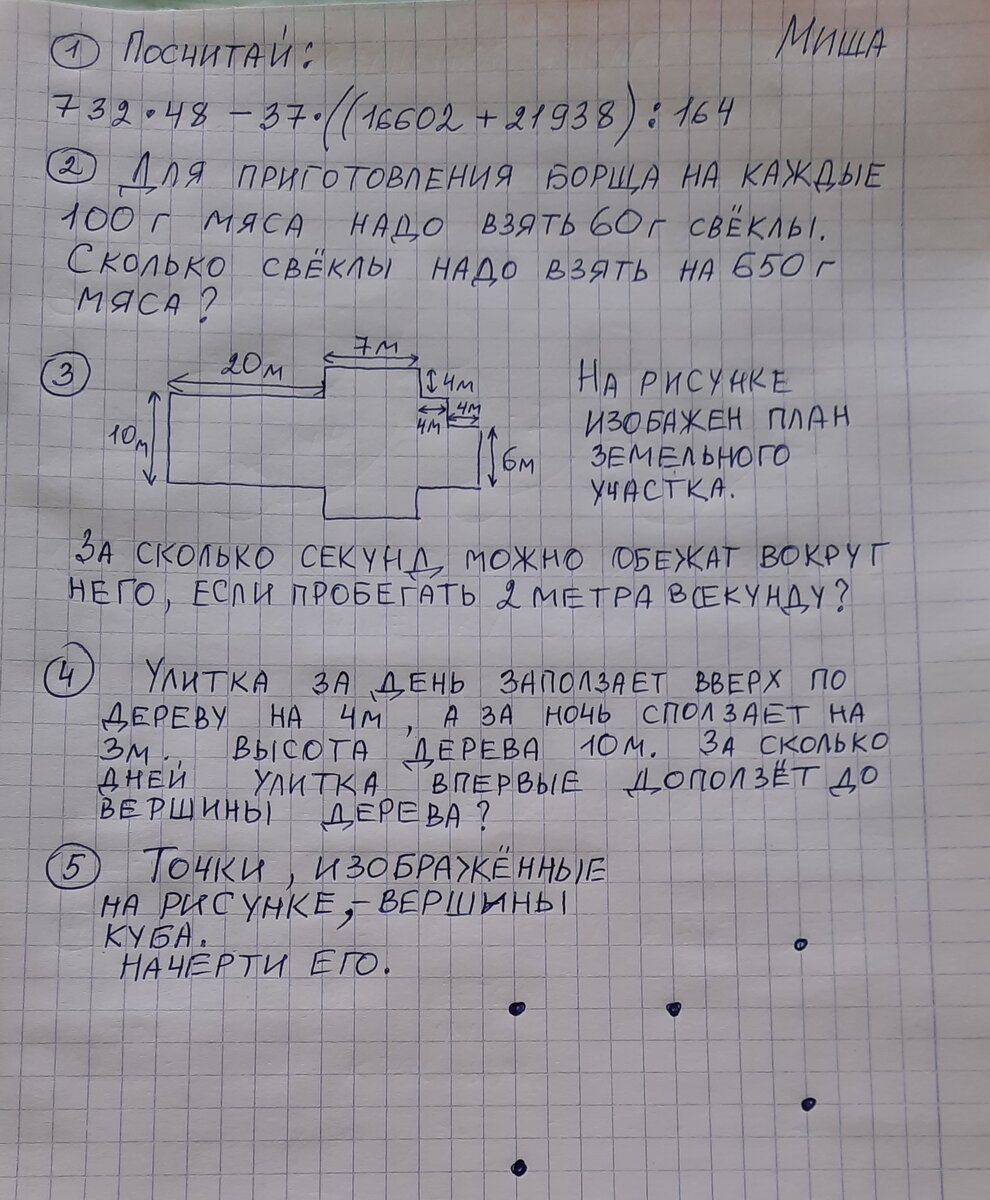 Миша
① Посчитай:
732·48 - 37·((16602 + 21938) : 164
② Для приготовления борща на каждые
100 г мяса надо взять 60 г свёклы.
Сколько свёклы надо взять на 650 г
мяса?
③
20м
7м
4м
4м
4м
10м
6м
На рисунке
изобажен план
земельного
участка.
За сколько секунд можно обежат вокруг
него, если пробегать 2 метра в секунду?
④ Улитка за день заползает вверх по
дереву на 4м, а за ночь сползает на
3м. Высота дерева 10м. За сколько
дней улитка впервые доползёт до
вершины дерева?
⑤ Точки, изображённые
на рисунке, - вершины
куба.
Начерти его.